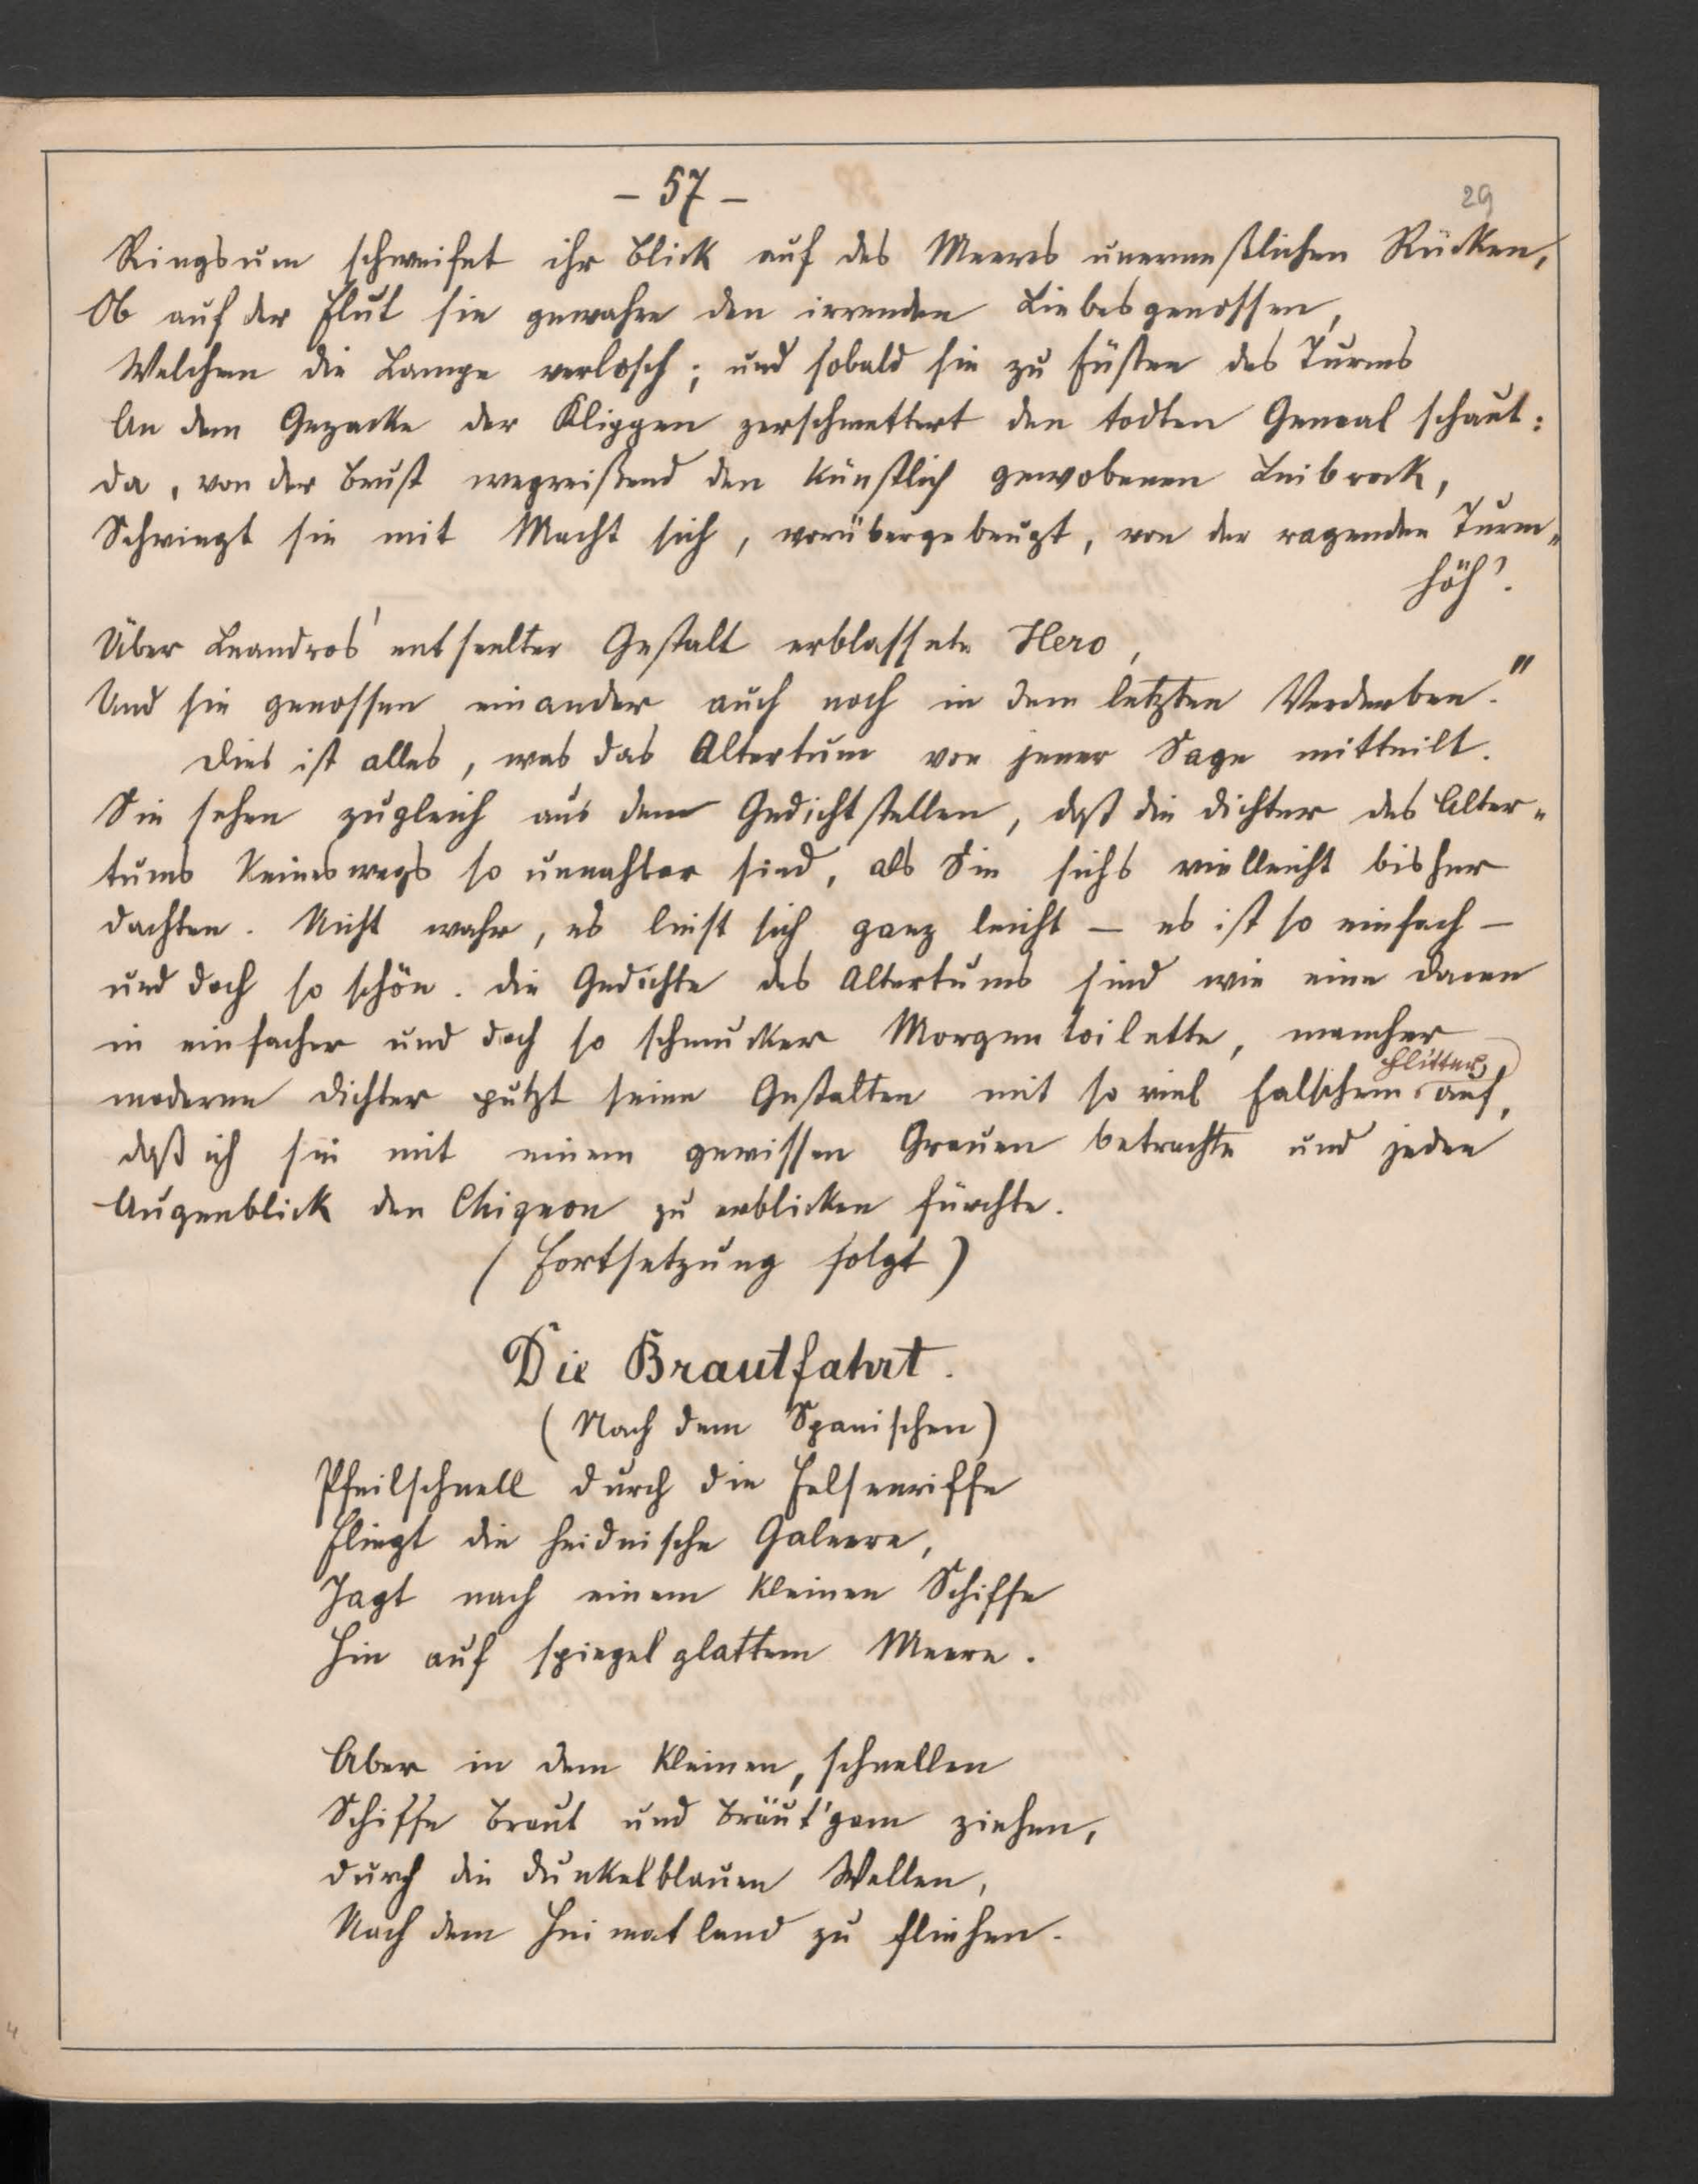 – 57 –
29
Ringsum schweifet ihr Blick auf des Meeres unermeßlichen Rücken,
Ob auf der Flut sie gewahre den irrenden Liebesgenossen,
Welchem die Lampe verlosch; und sobald sie zu Füßen des Turms
An dem Gezacke der Klippen zerschmettert den todten Gemal schaut:
Da, von der Brust wegreißend den künstlich gewobenen Leibrock,
Schwingt sie mit Macht sich, vorübergebeugt, von der ragenden Turm„
höh'.
Über Leandros' entseelter Gestalt erblassete Hero,
Und sie genossen einander auch noch in dem letzten Verderben."
Dies ist alles, was das Altertum von jener Sage mitteilt.
Sie sehen zugleich aus dem Gedichtstellen, daß die Dichter des Alter„
tums keineswegs so unnahbar sind, als Sie sichs vielleicht bisher
dachten. Nicht wahr, es liest sich ganz leicht – es ist so einfach –
und doch so schön. Die Gedichte des Altertums sind wie eine Damen
in einfacher und doch so schmucker Morgentoilette, mancher
Flitter
moderne Dichter putzt seine Gestalten mit so viel falschem auf,
daß ich sie mit einem gewissen Grauen betrachte und jeden
Augenblick den Chignon zu erblicken fürchte.
(Fortsetzung folgt)
Die Brautfahrt.
(Nach dem Spanischen)
Pfeilschnell durch die Felsenriffe
Fliegt die heidnische Galeere,
Jagt nach einem kleinen Schiffe
Hin auf spiegelglattem Meere.
Aber in dem kleinen, schnellen
Schiffe Braut und Bräut'gam ziehen,
Durch die dunkelblauen Wellen,
Nach dem Heimatland zu fliehen.